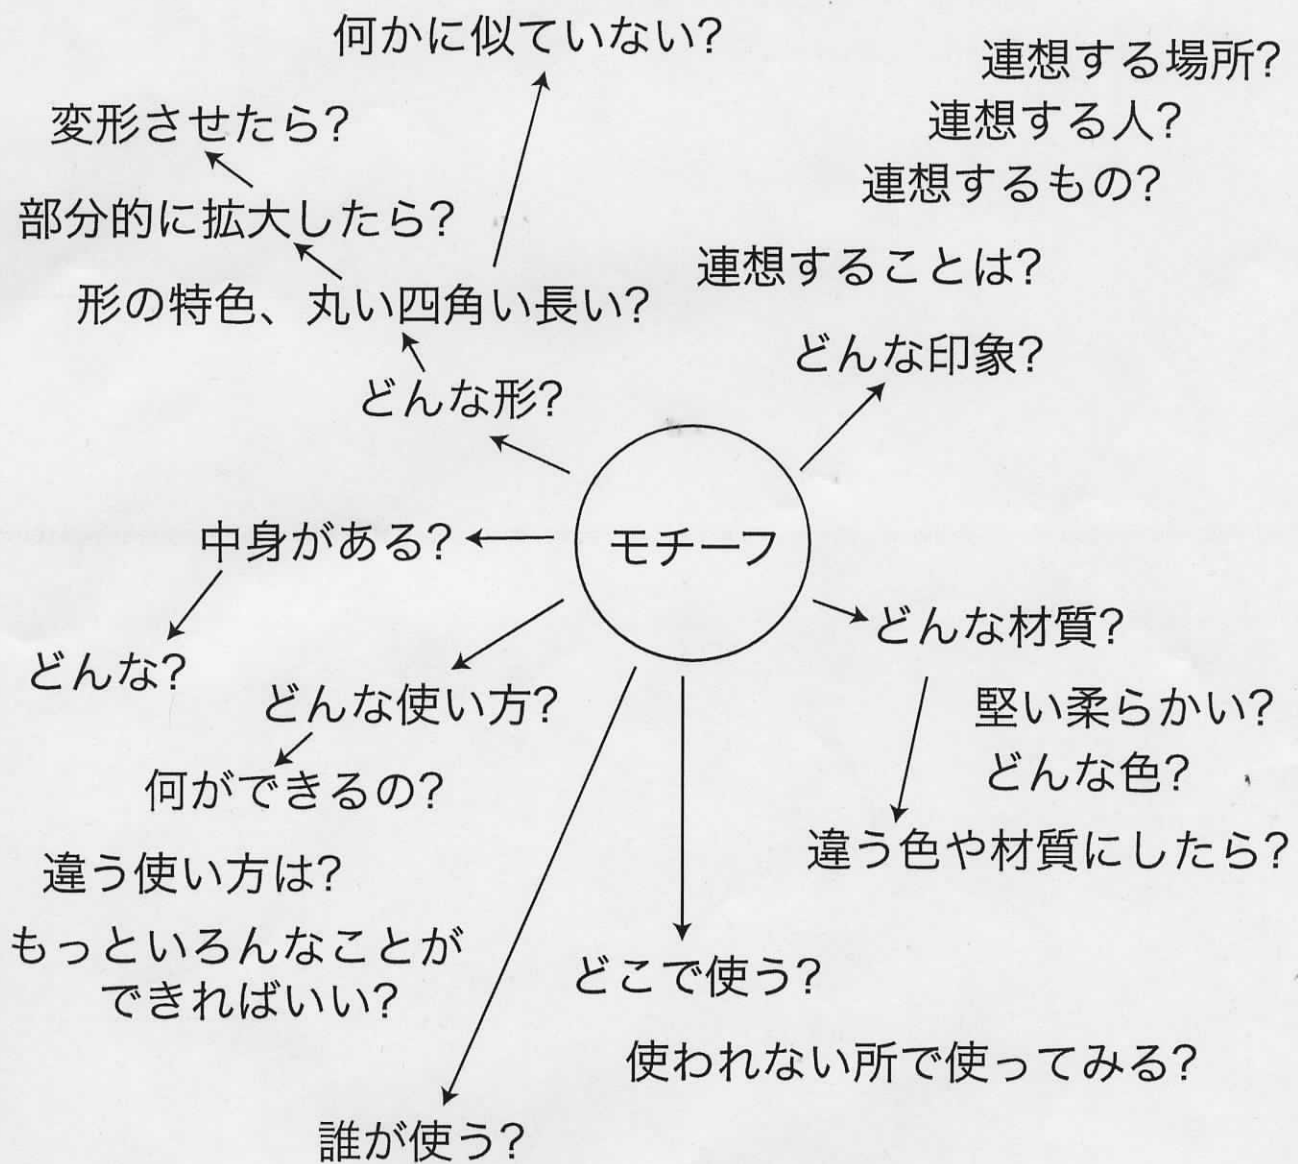 何かに似ていない?
連想する場所?
変形させたら?
連想する人?
連想するもの?
部分的に拡大したら?
連想することは?
形の特色、丸い四角い長い?
どんな印象?
どんな形?
中身がある?
モチーフ
どんな材質?
どんな?
どんな使い方?
堅い柔らかい?
どんな色?
何ができるの?
違う色や材質にしたら?
違う使い方は?
もっといろんなことが
できればいい?
どこで使う?
使われない所で使ってみる?
誰が使う?